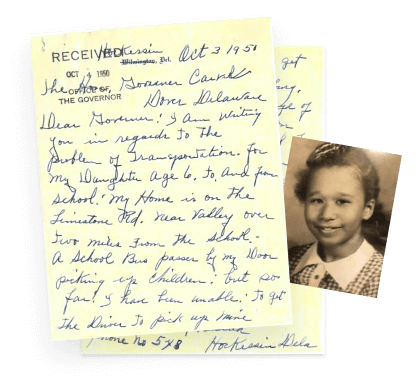 RECEIVED
Hockessin
Wilmington, Del.
Oct 3 1950
OCT 4 1950
OFFICE OF
THE GOVERNOR
The Hon. Governor Carvel
Dover Delaware
Dear Governor: I am writing
you in regards to the
problem of Transportation. for
my Daughter Age 6. to and from
school. My Home is on the
Limestone Rd. near Valley over
two miles from the school.-
A School Bus passes by my Door
picking up children: but so
far. I have been unable. to get
the Driver to pick up mine
get
of
Phone No 5x8
Hockessin Dela